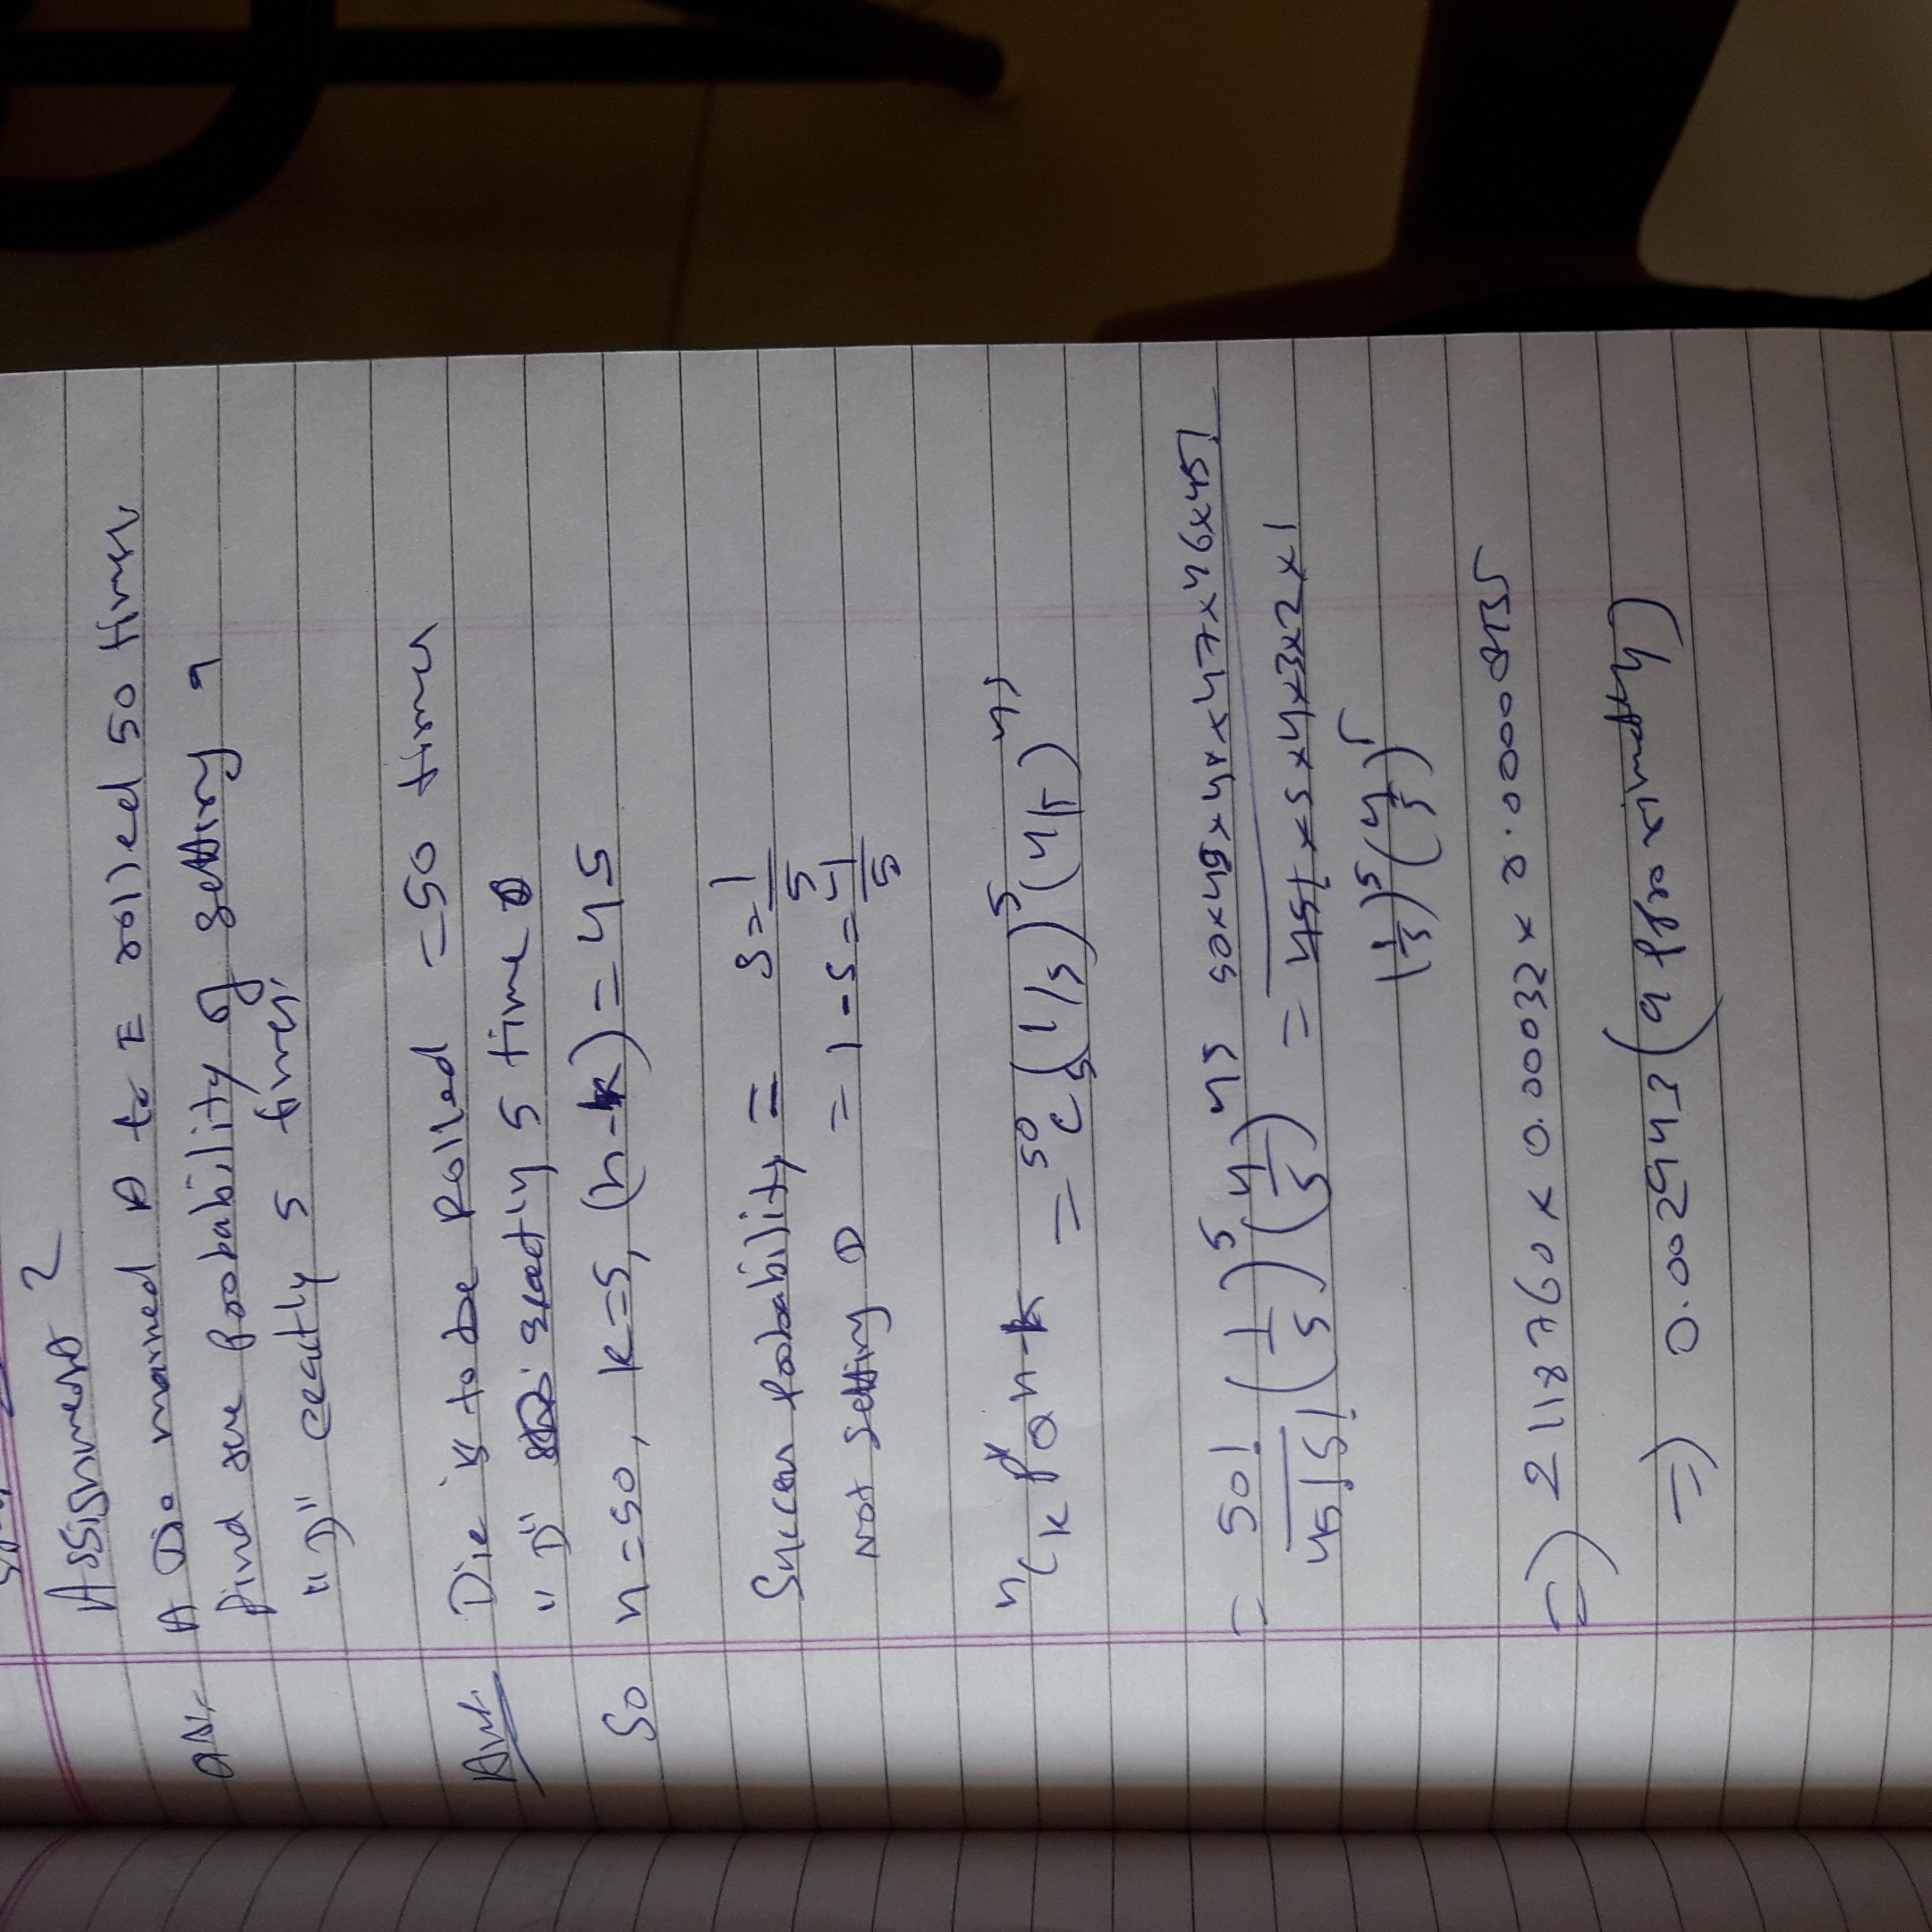 Assignment 2
QN:- A Die marked A to E rolled 50 times
find the Probability of getting a
"D" exactly 5 times.
Ans. Die is to be Rolled = 50 times
"D" exactly 5 time
So n=50, k=5, (n-k) = 45
Success Probability = S = 1/5
Not getting D = 1-S = 4/5
ⁿCₖ Pᵏ Qⁿ⁻ᵏ = ⁵⁰C₅ (1/5)⁵ (4/5)⁴⁵
= 50!/45!5! (1/5)⁵ (4/5)⁴⁵ = 50×49×48×47×46×45!/45!×5×4×3×2×1
(1/5)⁵ (4/5)⁵
=) 2118760 × 0.00032 ×
=) 0.002943 (approximately)